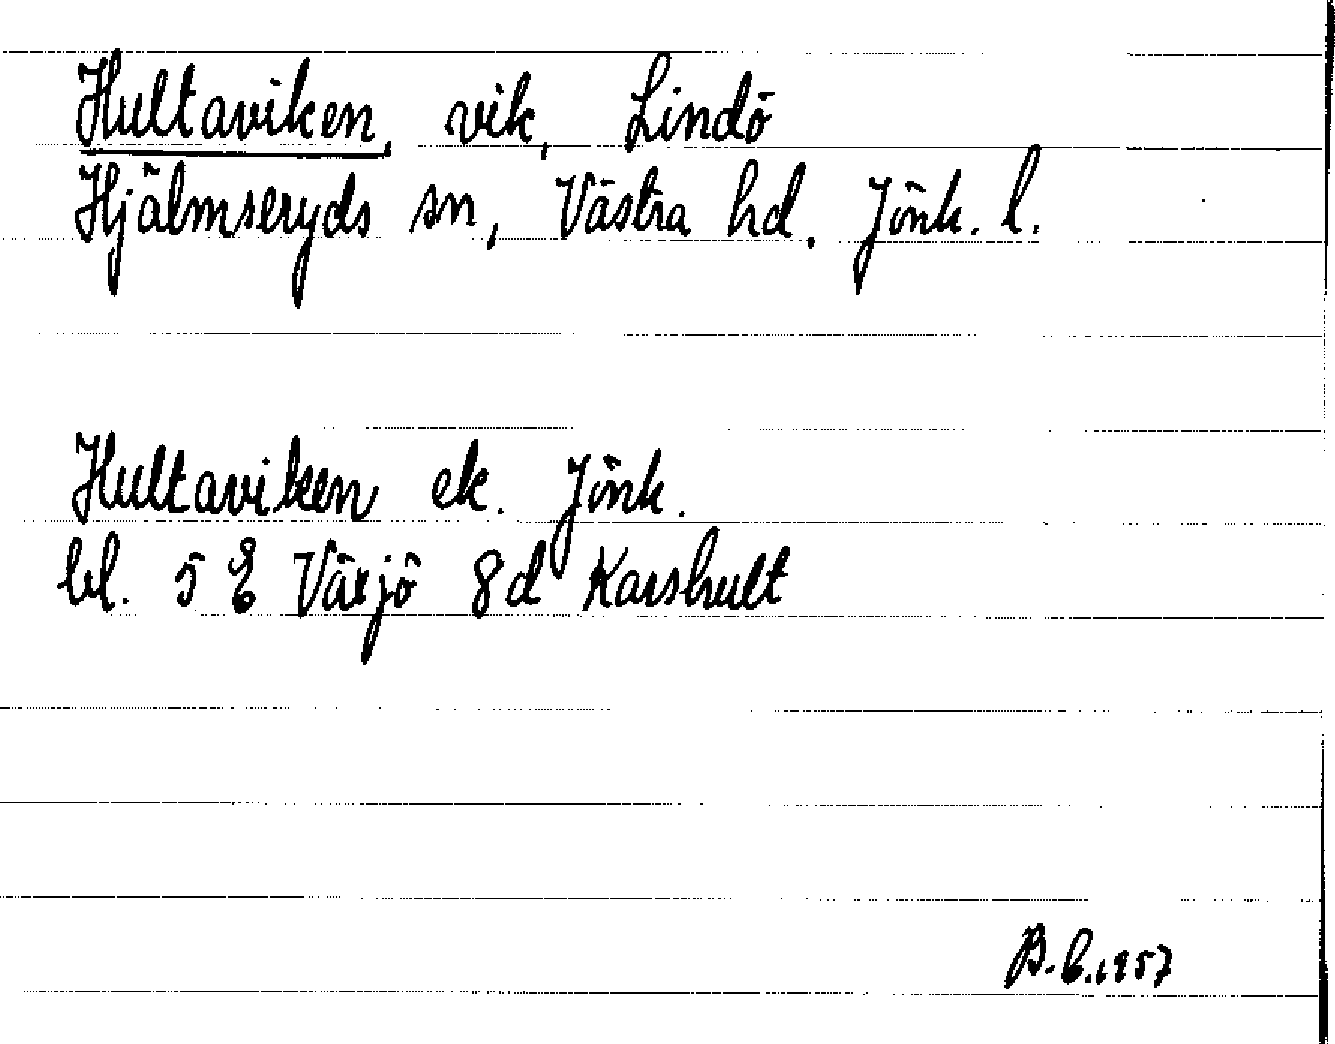 Hultaviken, vik, Lindö
Hjälmseryds sn, Västra hd. Jönk. l.
Hultaviken ek. Jönk.
bl. 5 E Växjö 8d Karshult
B.E.1957